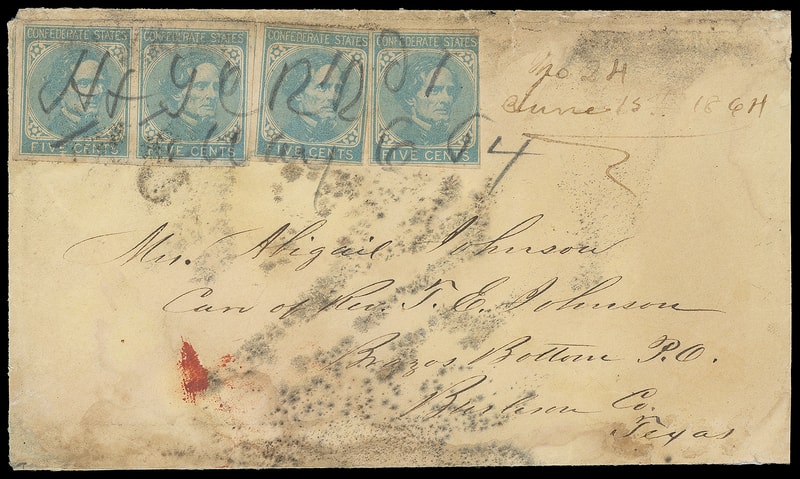 CONFEDERATE STATES CONFEDERATE STATES CONFEDERATE STATES CONFEDERATE STATES
FIVE CENTS FIVE CENTS FIVE CENTS FIVE CENTS
No 24
June 15 1864
Mrs. Abigail Johnson
Care of Rev. T. E. Johnson
Brazos Bottom P.O.
Burleson Co.
Texas